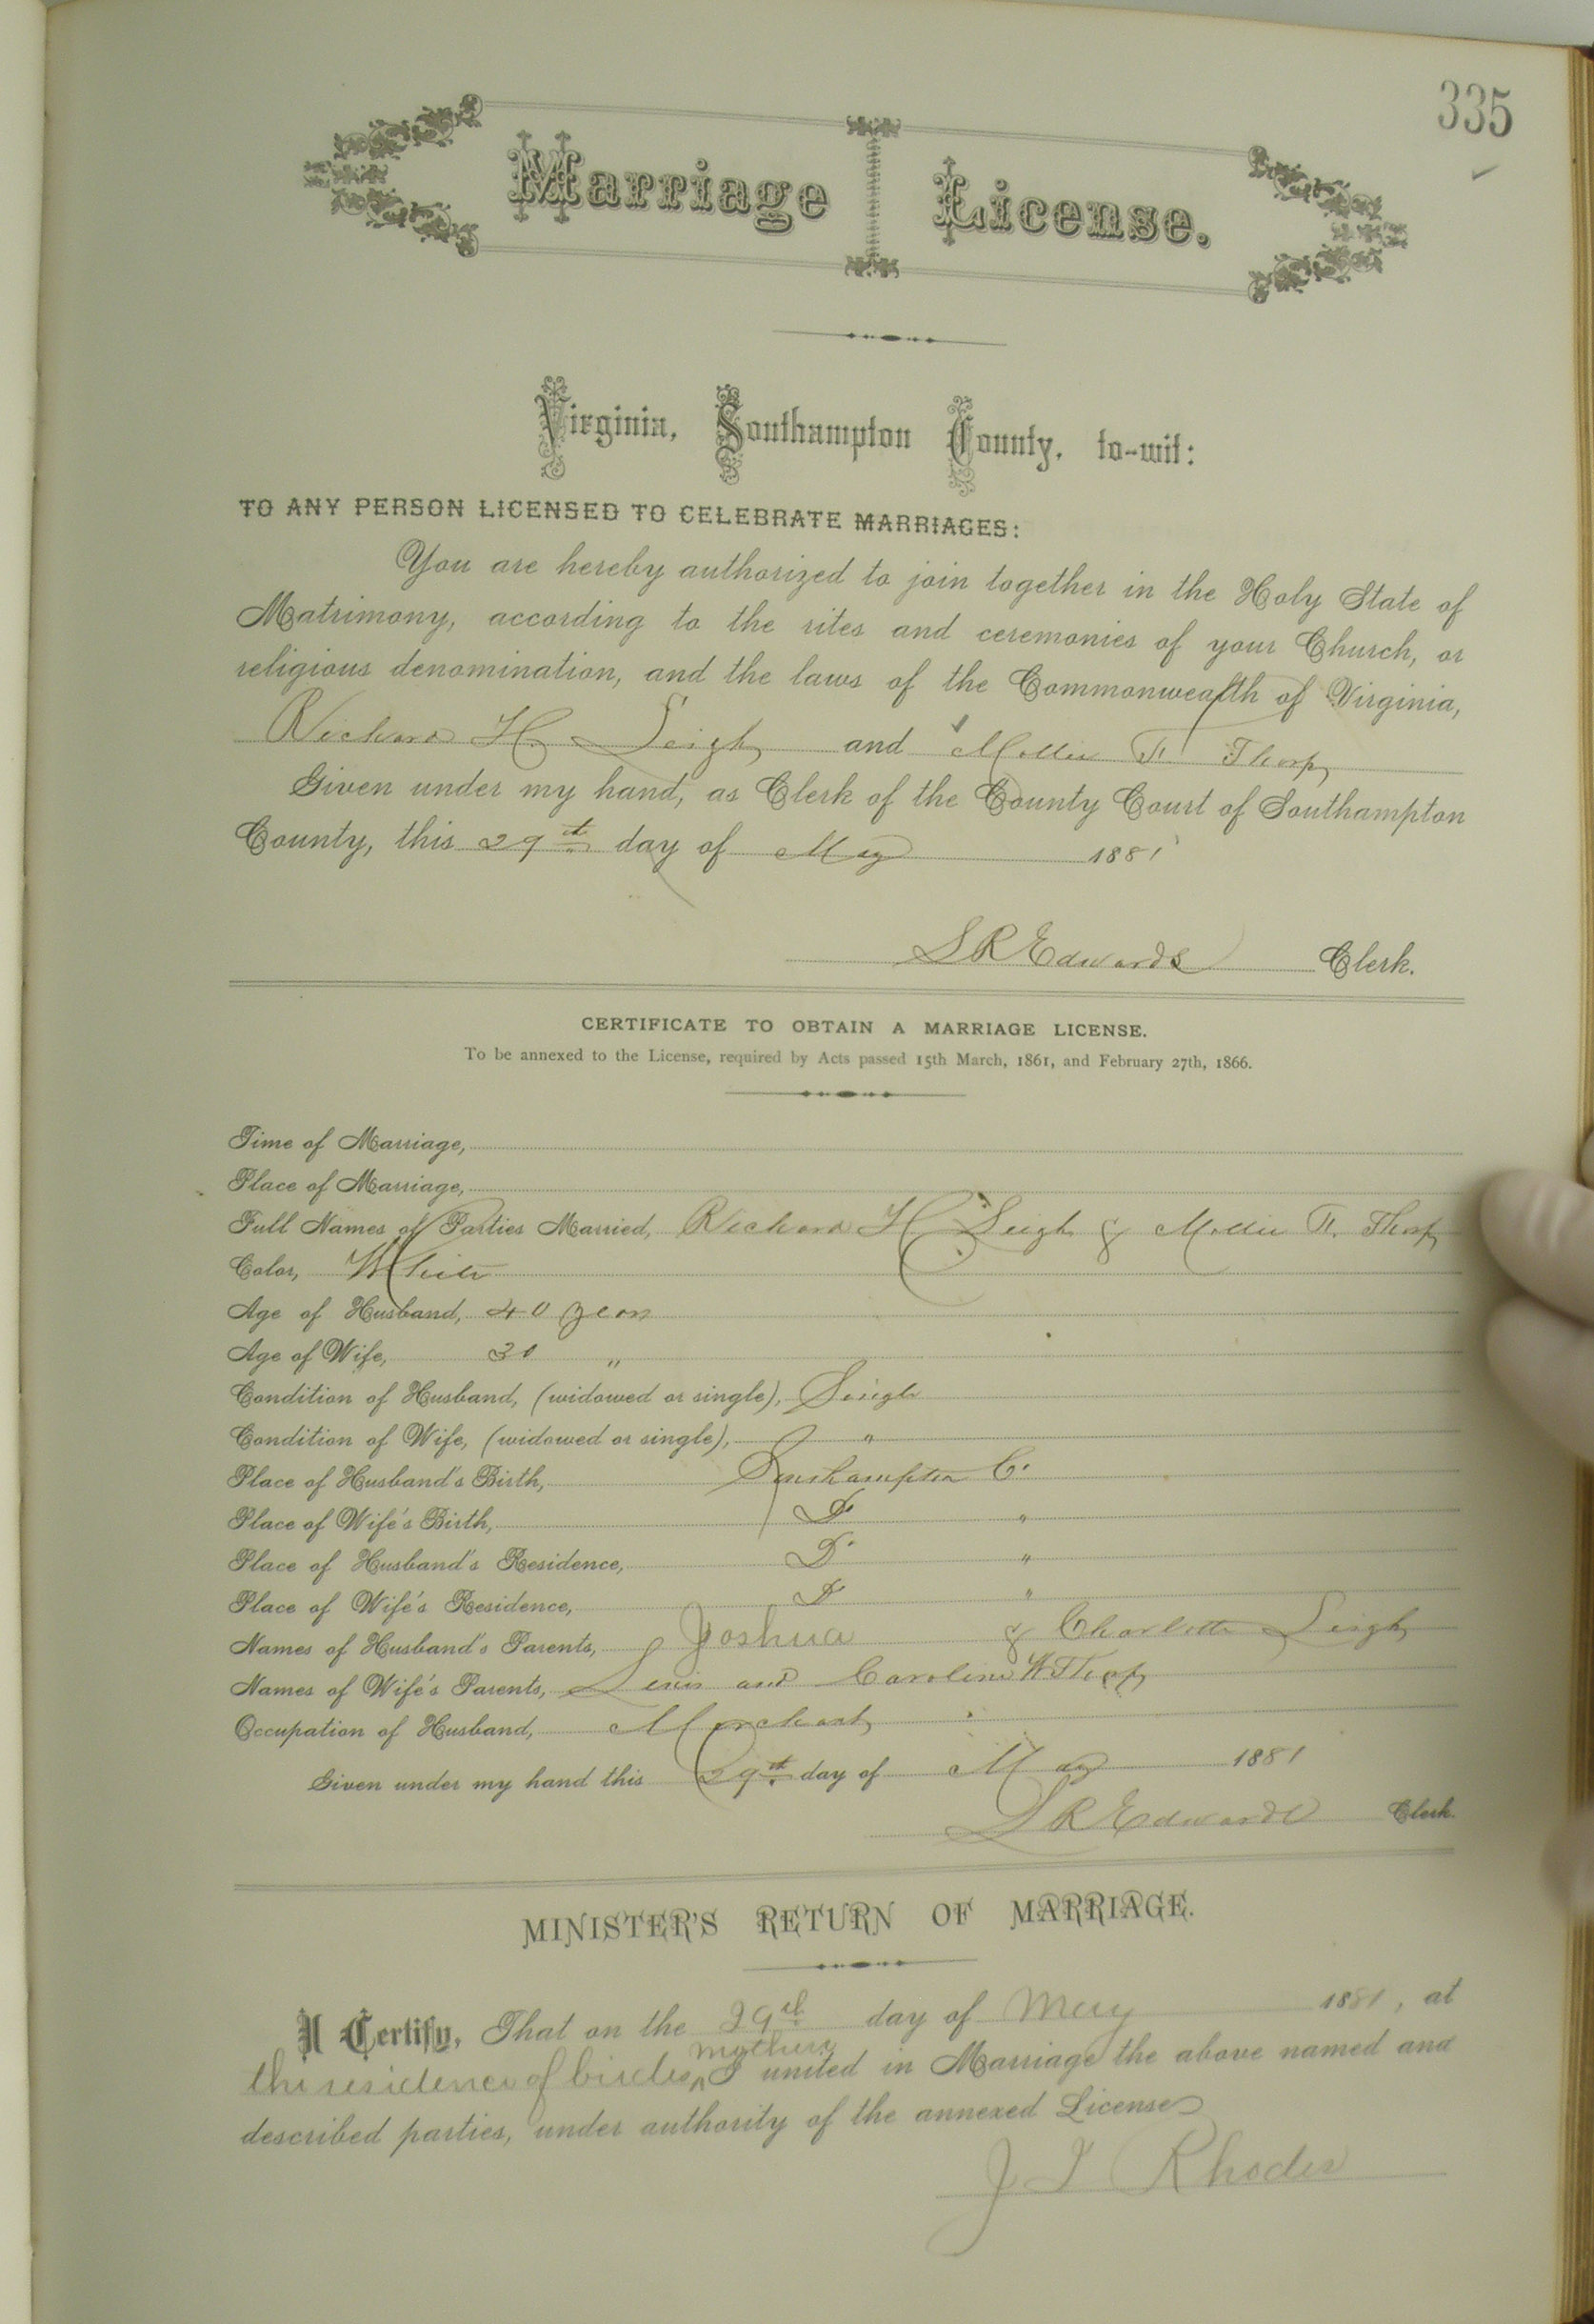 335
Marriage License.
Virginia, Southampton County, to-wit:
TO ANY PERSON LICENSED TO CELEBRATE MARRIAGES:
You are hereby authorized to join together in the Holy State of
Matrimony, according to the rites and ceremonies of your Church, or
religious denomination, and the laws of the Commonwealth of Virginia,
Richard H. Leigh and Mollie F. Thorp
Given under my hand, as Clerk of the County Court of Southampton
County, this 29th day of May 1881
S R Edwards Clerk.
CERTIFICATE TO OBTAIN A MARRIAGE LICENSE.
To be annexed to the License, required by Acts passed 15th March, 1861, and February 27th, 1866.
Time of Marriage,
Place of Marriage,
Full Names of Parties Married, Richard H Leigh & Mollie F. Thorp
Color, White
Age of Husband, 40 years
Age of Wife, 30 "
Condition of Husband, (widowed or single), Single
Condition of Wife, (widowed or single), "
Place of Husband's Birth, Southampton Co
Place of Wife's Birth, Do "
Place of Husband's Residence, Do "
Place of Wife's Residence, Do "
Names of Husband's Parents, Joshua & Charlotte Leigh
Names of Wife's Parents, Lewis and Caroline W Thorp
Occupation of Husband, Merchant
Given under my hand this 29th day of May 1881
S R Edwards Clerk.
MINISTER'S RETURN OF MARRIAGE.
I Certify, That on the 29th day of May 1881, at
mothers
the residence of brides ^ I united in Marriage the above named and
described parties, under authority of the annexed License
J T Rhodes